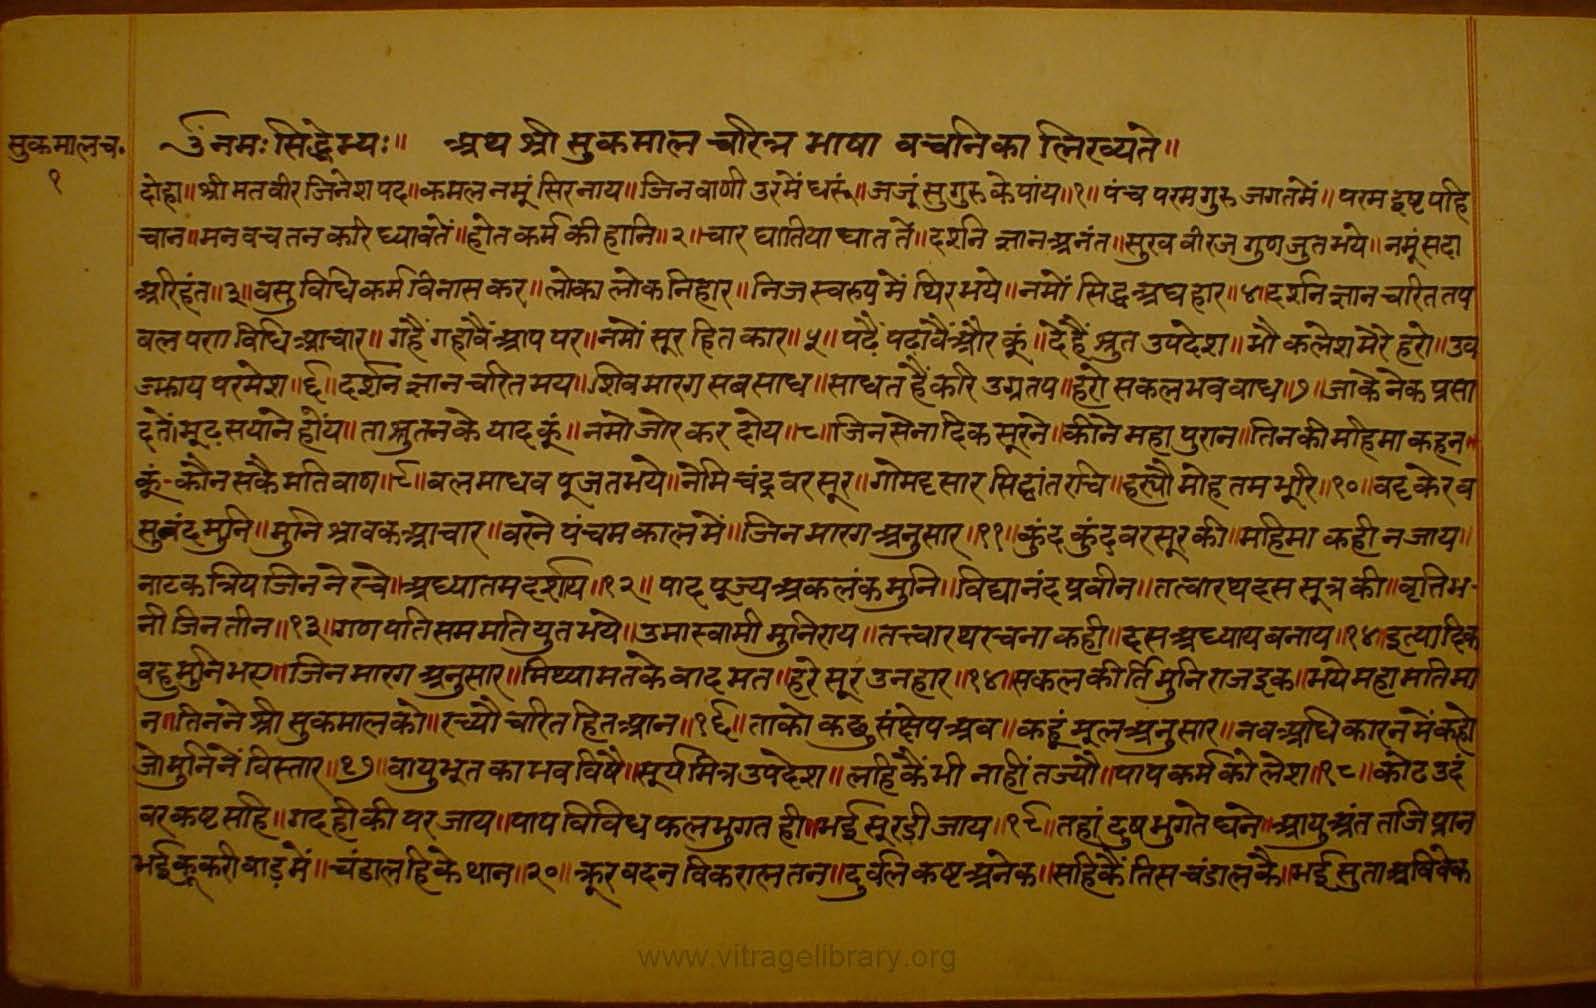 सुकमालच॰
१
ॐनमःसिद्धेभ्यः॥ अथ श्री सुकमाल चरित्र भाषा वचनिका लिख्यते॥
दोहा॥श्रीमतवीरजिनेशपद॥कमलनमूंसिरनाय॥जिनवाणीउरमेंधरूं॥जजूंसुगुरुकेपांय॥१॥पंचपरमगुरुजगतमें॥परमइष्टपहि
चान॥मनवचतनकरिध्यावतें॥होतकर्मकीहानि॥२॥चारघातियाघाततें॥दर्शनज्ञानअनंत॥सुखवीरजगुणजुतभये॥नमूंसदा
अरिहंत॥३॥वसुविधिकर्मविनासकर॥लोकालोकनिहार॥निजस्वरुपमेंथिरभये॥नमोंसिद्धअघहार॥४॥दर्शनज्ञानचरिततप
वलपणविधिआचार॥गहैंगहावैंआपपर॥नमोंसूरहितकार॥५॥पढैंपढावैंऔरकूं॥देहैंश्रुतउपदेश॥मौकलेशमेरेहरो॥उव
ज्झायपरमेश॥६॥दर्शनज्ञानचरितमय॥शिवमारगसबसाध॥साधतहैंकरिउग्रतप॥हरोसकलभवबाध॥७॥जाकेनेकप्रसा
दतें॥मूढसयानेहोंय॥ताश्रुतनकेयादकूं॥नमोजोरकरदोय॥८॥जिनसेनादिकसूरने॥कीनेमहापुरान॥तिनकीमहिमाकहन
कूं-कौनसकैमतिवाण॥९॥वलमाधवपूजतभये॥नेमिचंद्रवरसूर॥गोमट्टसारसिद्धांतरचि॥हर्यौमोहतमभूरि॥१०॥वट्टकेरव
सुनंदमुनि॥मुनिश्रावकआचार॥वरनेपंचमकालमें॥जिनमारगअनुसार॥११॥कुंदकुंदवरसूरकी॥महिमाकहीनजाय॥
नाटकत्रियजिननेरचे॥अध्यातमदर्शाय॥१२॥पादपूज्यअकलंकमुनि॥विद्यानंदप्रवीन॥तत्वारथदससूत्रकी॥वृत्तिभ-
नीजिनतीन॥१३॥गणपतिसममतियुतभये॥उमास्वामीमुनिराय॥तत्त्वारथरचनाकही॥दसअध्यायबनाय॥१४॥इत्यादिक
बहुमुनिभए॥जिनमारगअनुसार॥मिथ्यामतकेवादमत॥हरेसूरउनहार॥१५॥सकलकीर्तिमुनिराजइक॥भयेमहामतिमा
न॥तिननेश्रीसुकमालको॥रच्यौचरितहितआन॥१६॥ताकोकछुसंक्षेपअव॥कहूंमूलअनुसार॥नवअधिकारनमेंकहो
जोमुनिनेंविस्तार॥१७॥वायुभूतकाभवविषै॥सूर्यमित्रउपदेश॥लहिकैंभीनाहींतज्यौ॥पापकर्मकोलेश॥१८॥कोटउदं
वरकष्टसहि॥गदहीकीपरजाय॥पापविविधफलभुगतही॥भईसूरडीजाय॥१९॥तहांदुषभुगतेघने॥आयुअंततजिप्रान
भईकूकरीवाड़में॥चंडालहिकेथान॥२०॥क्रूरवदनविकरालतन॥दुर्वलकष्टअनेक॥सहिकैंतिसचंडालकै॥भईसुताअविवेक
www.vitragelibrary.org